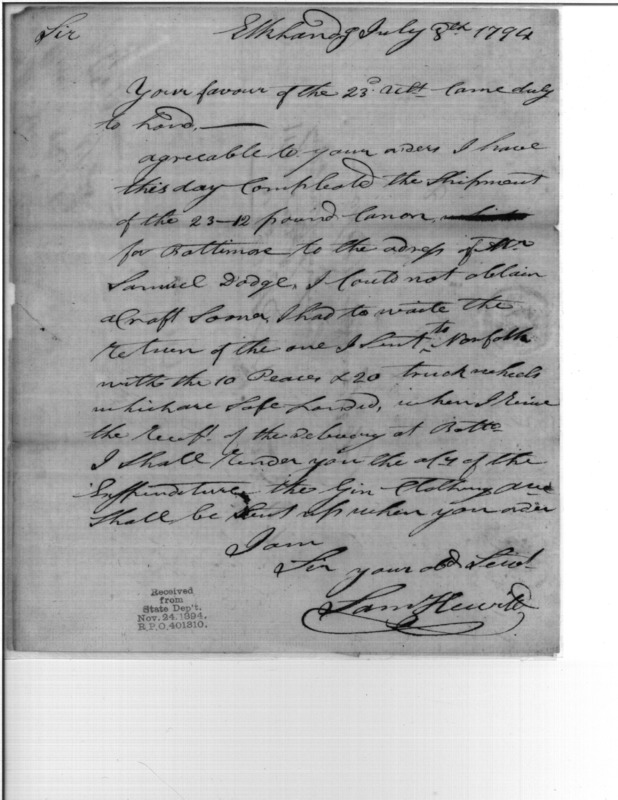 Sir Elkhand July 8th 1794
Your favour of the 23d Ult. Came duly
to hand,—
agreeable to your orders I have
this day Compleated the Shipment
of the 23–12 pound Canon,
for Baltimore to the adress of Mr
Samuel Dodge, I Could not obtain
a Craft Sooner, I had to waite the
return of the one I Sent to Norfolk
with the 10 Peaces & 20 truck wheels
which are Safe Landed, when I
the of the delivery at Balto
I Shall render you the of the
the Gin Clothing are
Shall be Sent up when you order
I am
Sir your obd Servt
Saml Hewitt
Received
from
State Dep't.
Nov. 24, 1894.
R.P.O. 401310.